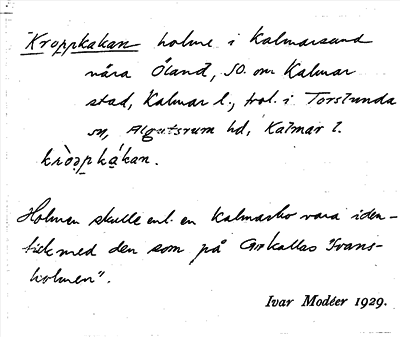 "Kroppkakan holme i Kalmarsund
nära Öland, SO. om Kalmar
stad, Kalmar l., trol. i Torslunda
sn, Algutsrum hd, Kalmar l.
kròppkákan.
Holmen skulle enl. en Kalmarbo vara iden-
tisk med den som på kallas Svans-
holmen".
Ivar Modéer 1929.